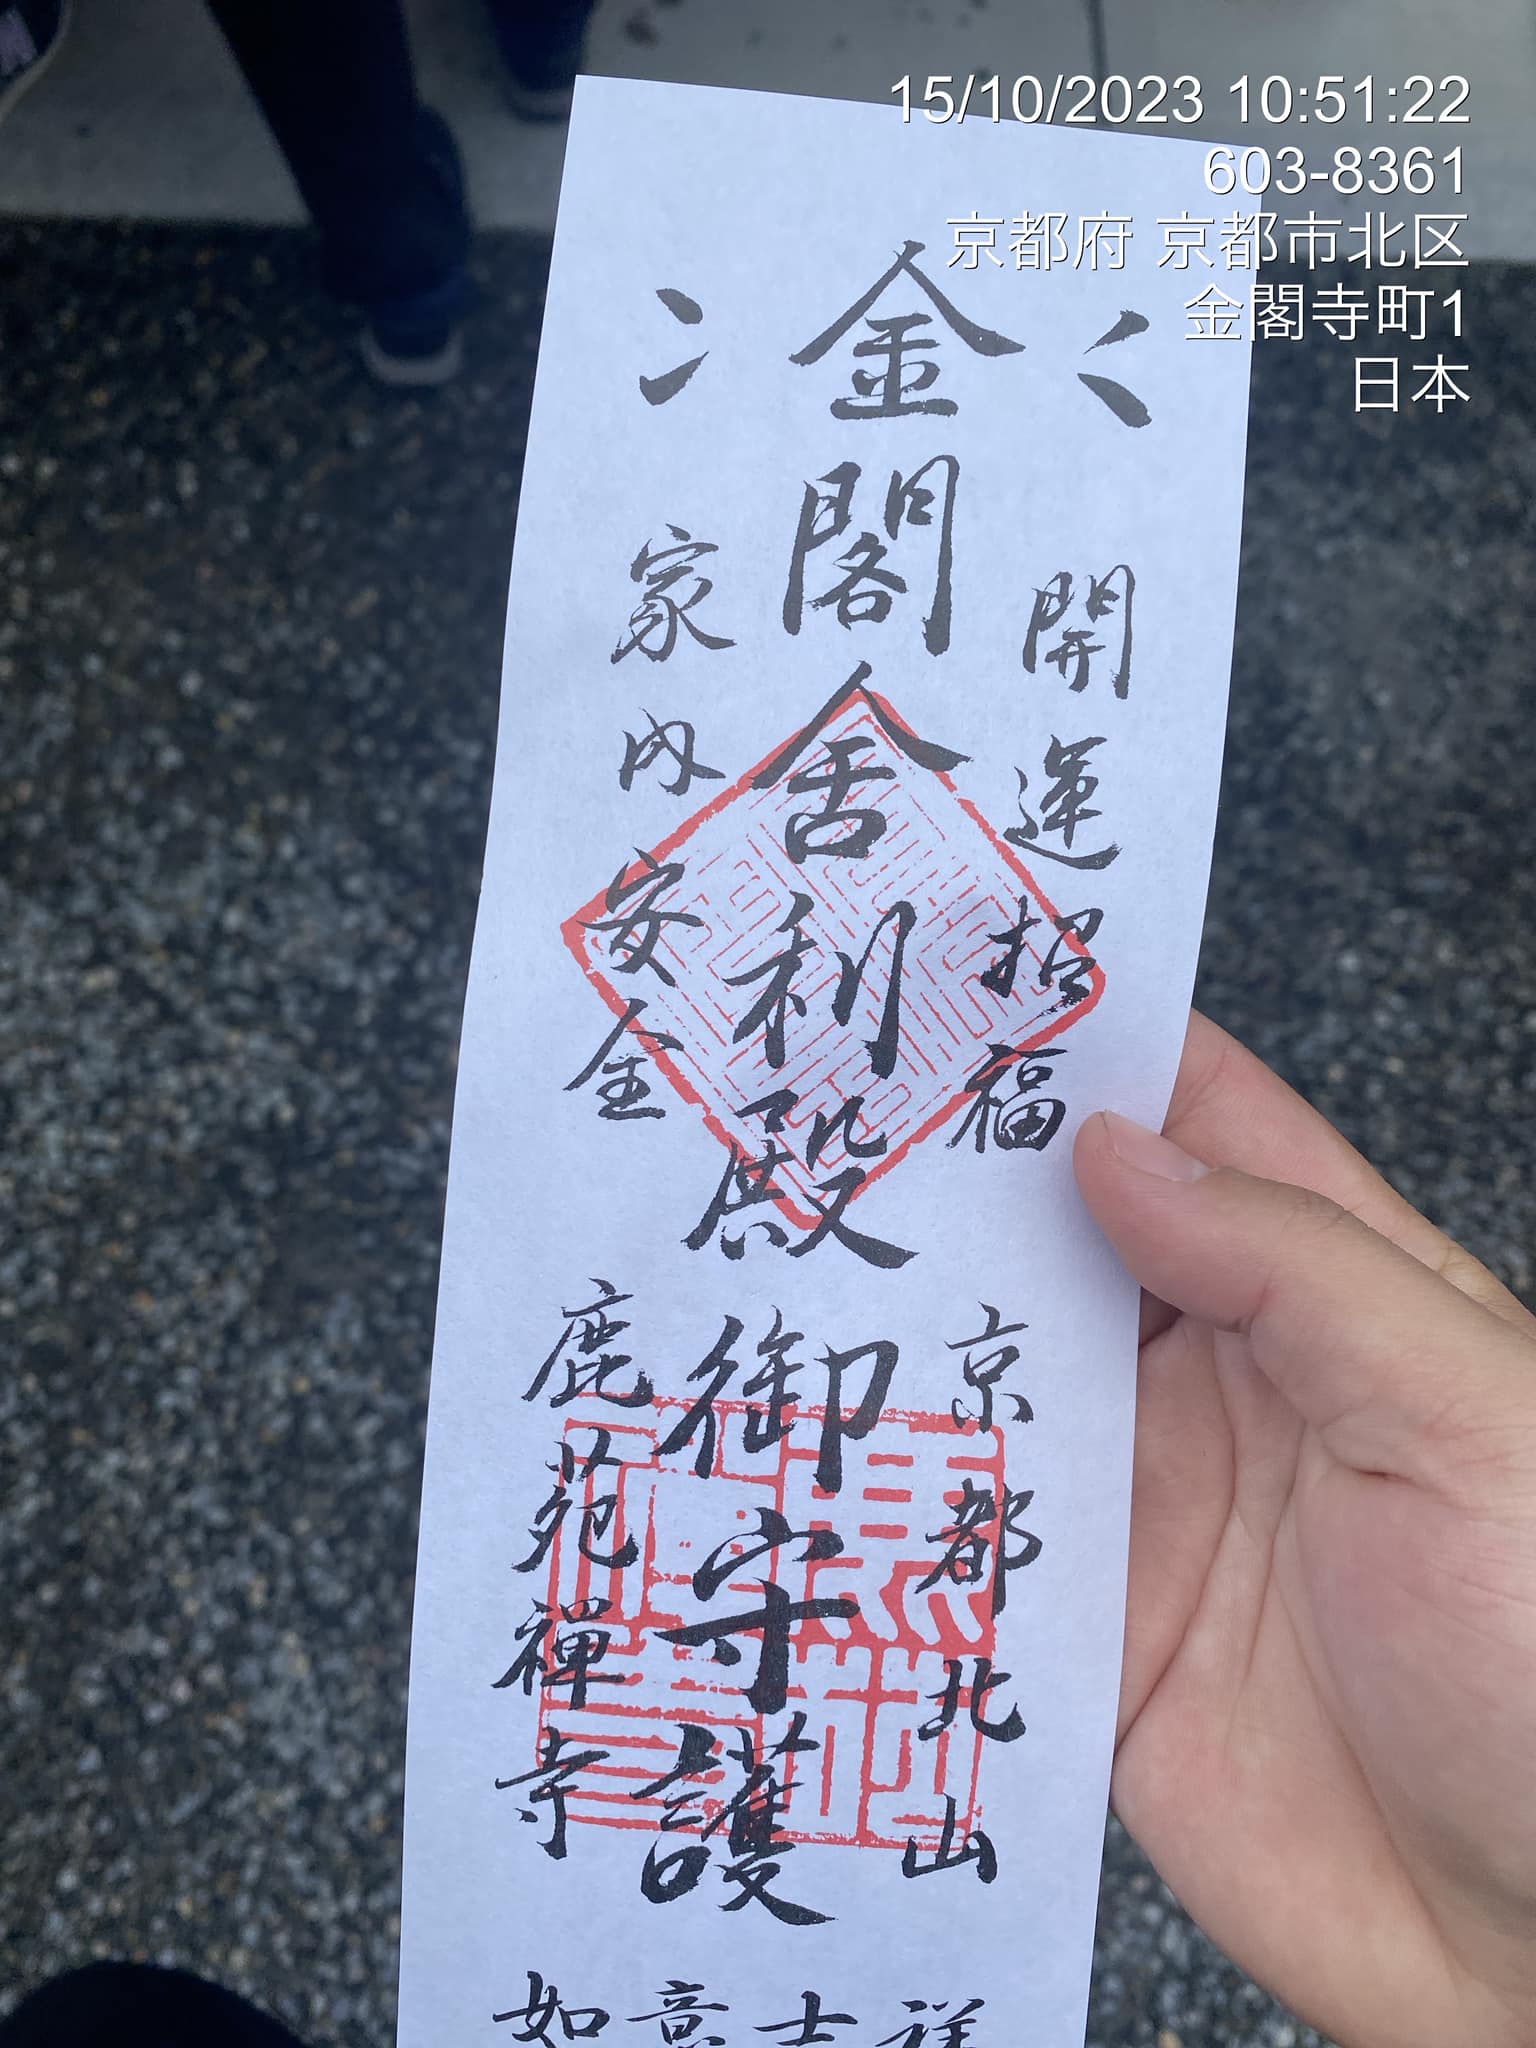 15/10/2023 10:51:22
603-8361
京都府 京都市北区
金閣寺町1
日本
開運招福
京都北山
金閣舎利殿御守護
家内安全
鹿苑禅寺
如意吉祥